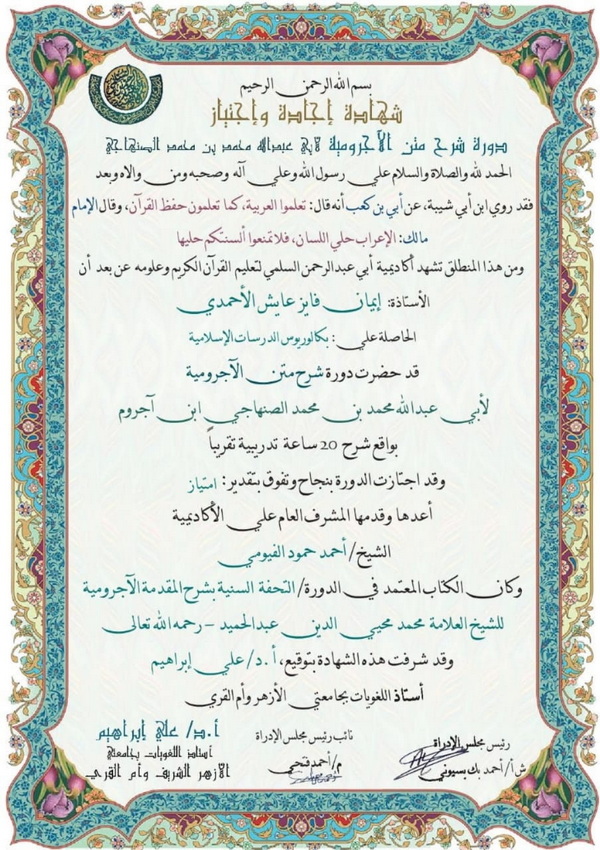 بسم الله الرحمن الرحيم
شهادة إجادة وإجتياز
دورة شرح متن الآجرومية لأبي عبدالله محمد بن محمد الصنهاجي
الحمد لله والصلاة والسلام علي رسول الله وعلي آله وصحبه ومن والاه وبعد
فقد روي ابن أبي شيبة، عن أبي بن كعب أنه قال: تعلموا العربية، كما تعلمون حفظ القرآن، وقال الإمام
مالك: الإعراب حلي اللسان، فلا تمنعوا ألسنتكم حليها
ومن هذا المنطلق تشهد أكاديمية أبي عبدالرحمن السلمي لتعليم القرآن الكريم وعلومه عن بعد أن
الأستاذة: إيمان فايز عايش الأحمدي
الحاصلة علي: بكالوريوس الدرسات الإسلامية
قد حضرت دورة شرح متن الآجرومية
لأبي عبدالله محمد بن محمد الصنهاجي ابن آجروم
بواقع شرح 20 ساعة تدريبية تقريباً
وقد اجتازت الدورة بنجاح وتفوق بتقدير: امتياز
أعدها وقدمها المشرف العام علي الأكاديمية
الشيخ/ أحمد حمود الفيومي
وكان الكتاب المعتمد في الدورة/ التحفة السنية بشرح المقدمة الآجرومية
للشيخ العلامة محمد محيي الدين عبدالحميد – رحمه الله تعالى
وقد شرفت هذه الشهادة بتوقيع، أ.د/ علي إبراهيم
أستاذ اللغويات بجامعتي الأزهر وأم القري
رئيس مجلس الإدراة
ش أ/ أحمد بك بسيوني
نائب رئيس مجلس الإدراة
م/ أحمد فتحي
أ.د/ علي إبراهيم
أستاذ اللغويات بجامعتي
الأزهر الشريف وأم القرى